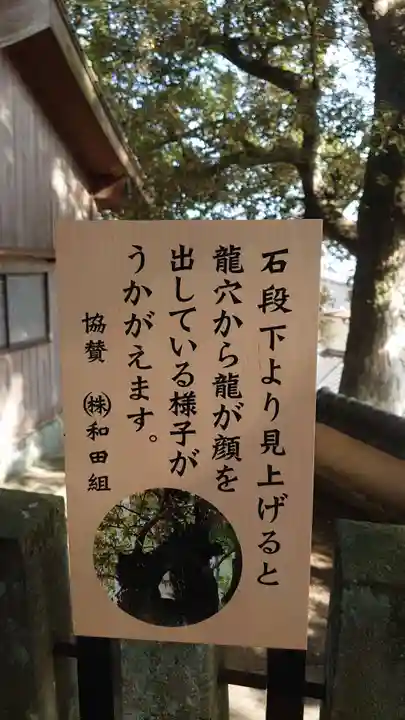 石段下より見上げると
龍穴から龍が顔を
出している様子が
うかがえます。
協賛 ㈱和田組